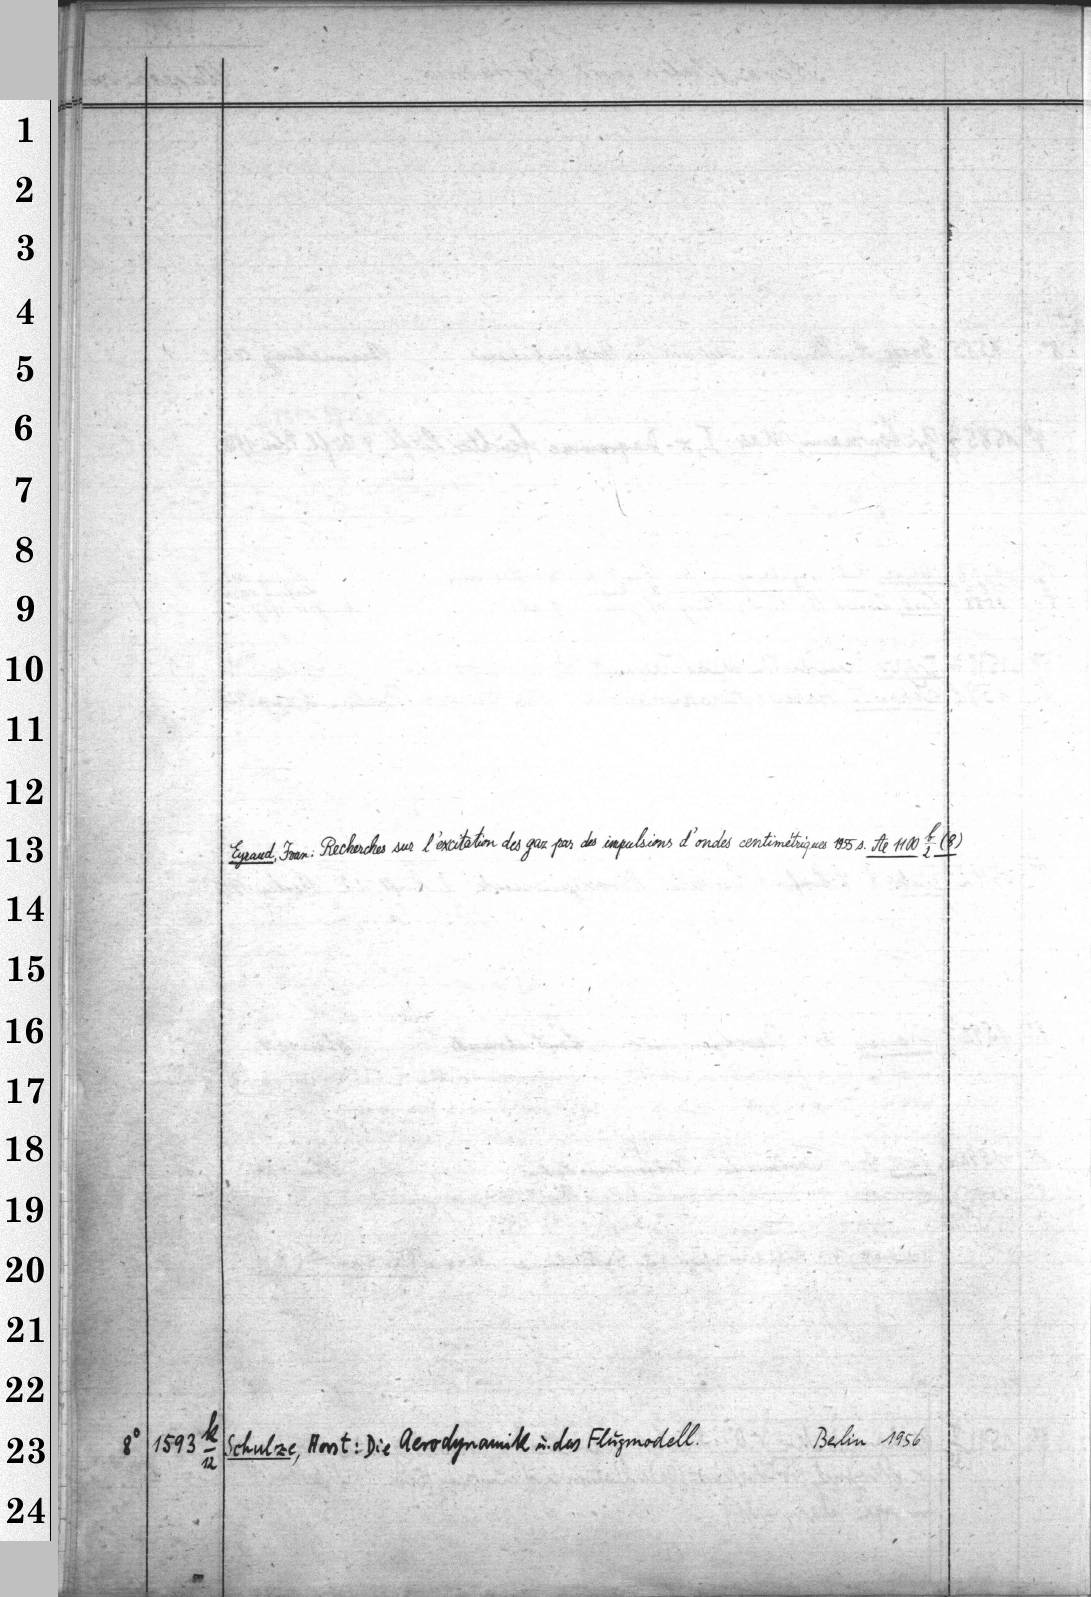 1
2
3
4
5
6
7
8
9
10
11
12
13 Eyraud, Ivan: Recherches sur l'excitation des gaz par des impulsions d'ondes centimétriques 1955 s. Ae 1100 b/2 (8)
14
15
16
17
18
19
20
21
22
23 8° 1593 k/12 Schulze, Horst: Die Aerodynamik u. das Flugmodell. Berlin 1956
24